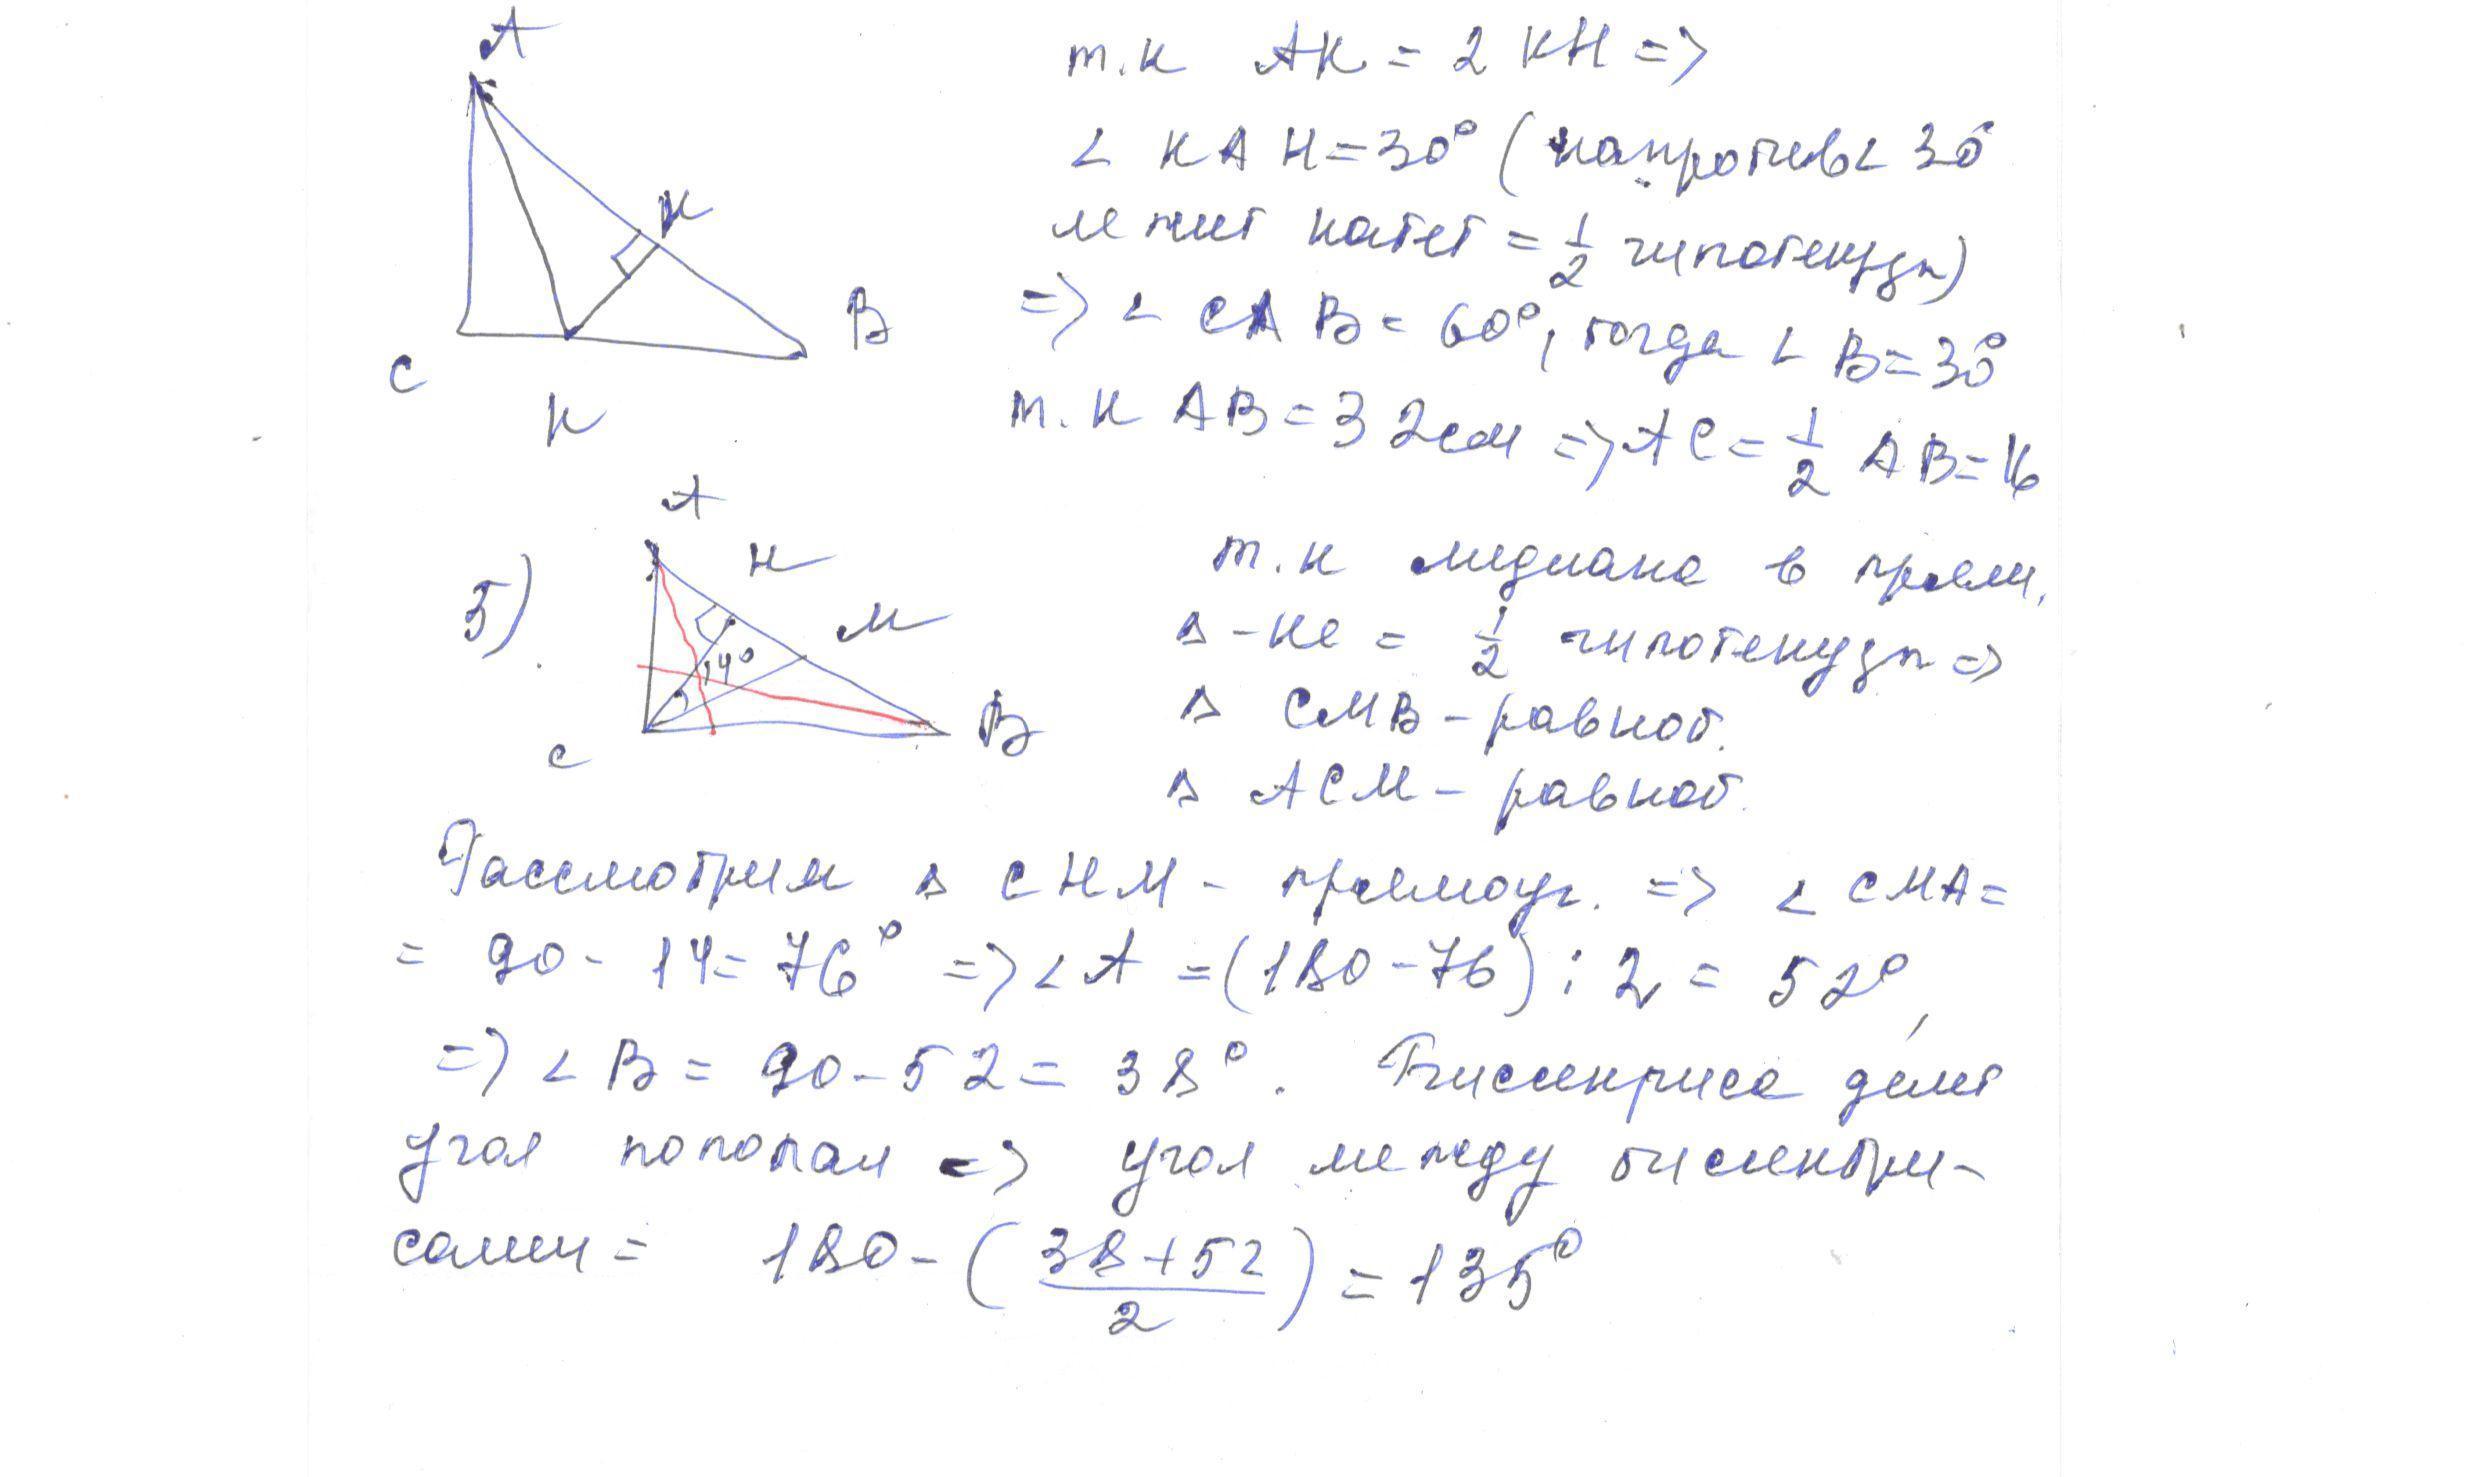 A
т.к AK = 2 KH =>
∠ KAH = 30° (напротив ∠ 30°
H
лежит катет = 1/2 гипотенузы)
B
=> ∠ CAB = 60°, тогда ∠ B = 30°
C
K
т.к AB = 32см => AC = 1/2 AB = 16
A
5)
H
M
14°
C
B
т.к медиана в прям.
Δ - ке = 1/2 гипотенузы =>
Δ CMB - равноб.
Δ ACM - равноб.
Рассмотрим Δ CHM - прямоуг. => ∠ CMA =
= 90 - 14 = 76° => ∠ A = (180 - 76) : 2 = 52°,
=> ∠ B = 90 - 52 = 38°. Биссектриса делит
угол пополам => угол между биссектри-
сами = 180 - (38 + 52 / 2) = 135°